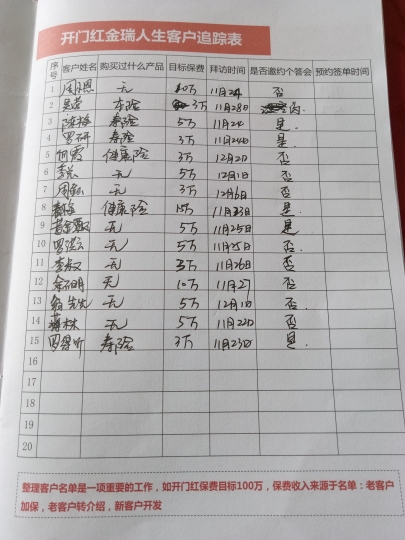 开门红金瑞人生客户追踪表
序号 客户姓名 购买过什么产品 目标保费 拜访时间 是否邀约个答会 预约签单时间
1 无 10万 11月24 否
2 3万 11月28日
3 寿险 5万 11月24 是.
4 罗研 寿险 3万 11月24日 是.
5 何霞 健康险 3万 12月2日 否
6 无 5万 12月1日 否
7 无 3万 12月6日 否
8 健康险 11月23日 是
9 无 5万 11月25日 是
10 无 5万 11月25日 否
11 无 3万 11月26日 否
12 无 10万 11月27 否
13 无 5万 12月1日 否.
14 无 5万 11月22日 否
15 寿险 3万 11月23日 是.
16
17
18
19
20
整理客户名单是一项重要的工作，如开门红保费目标100万，保费收入来源于名单：老客户
加保，老客户转介绍，新客户开发